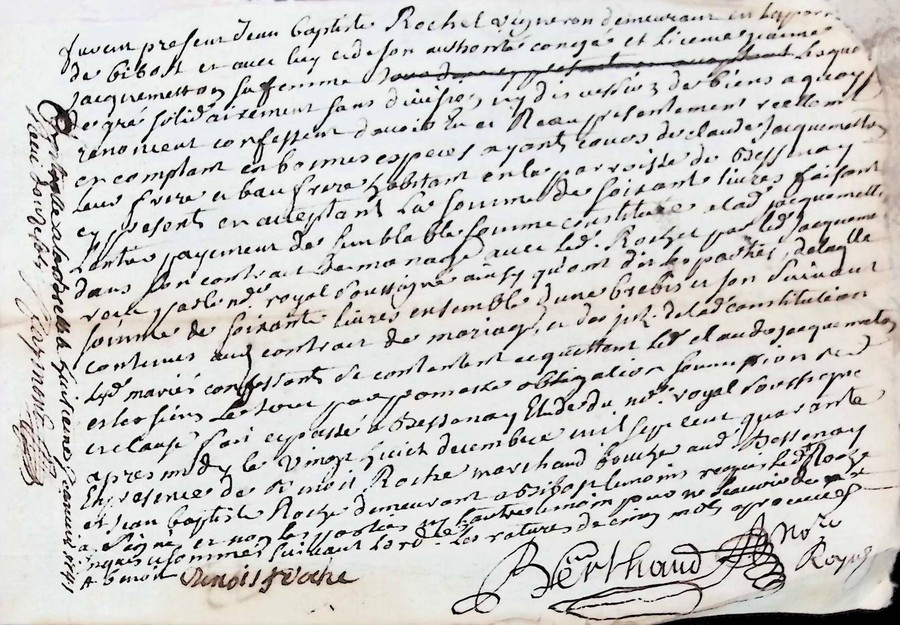 furent present Jean baptiste Rochet vigneron demeurant en la parr
de bibost et avec luy et de son authorité congés et licence
Jacquemetton sa femme lesque
de gré solidairement sans division ny discussion des biens a quoy
renoncent confessent d'avoir eu et Receu presentement reellem
en comptant en bonnes especes ayant cours de claude Jacquemetton
leur frere et beaufrere habitant en la parroisse de Bessenay
cy present en acceptant La somme de soixante livres faisant
l'entier payement de semblable somme constituée a lad Jacquemette
dans son contrat de mariage avec led. Rochet par led Jacqueme
receu par le nore royal soussigné ainsy qu'ont dit les parties, de laquelle
somme de soixante livres ensemble d'une brebis et son suivant
contenus aud contrat de mariage et des de lad constitution
lesd mariés confessants se contentent et quittent led claude Jacquemeton
et les siens le tout par promesse obligation soumission ren
et clause fait et passé a Bessenay Etude du nore royal soussigné
apres midy le vingt huit decembre mil sept cent quarante
En presence de Benoit Roche marchand boucher aud Bessenay
et Jean baptiste Roche demeurant a Bibost temoins requis led Roche
a signé et non les parties ny l'autre temoin pour ne sçavoir de ce
enquis et sommés suivant l'ord. les ratures de cinq mots aprouvées
Benoist Roche
Berthaud nore
Royal
Controllé a la fuscienne Janvier 1741
Receu douze sols